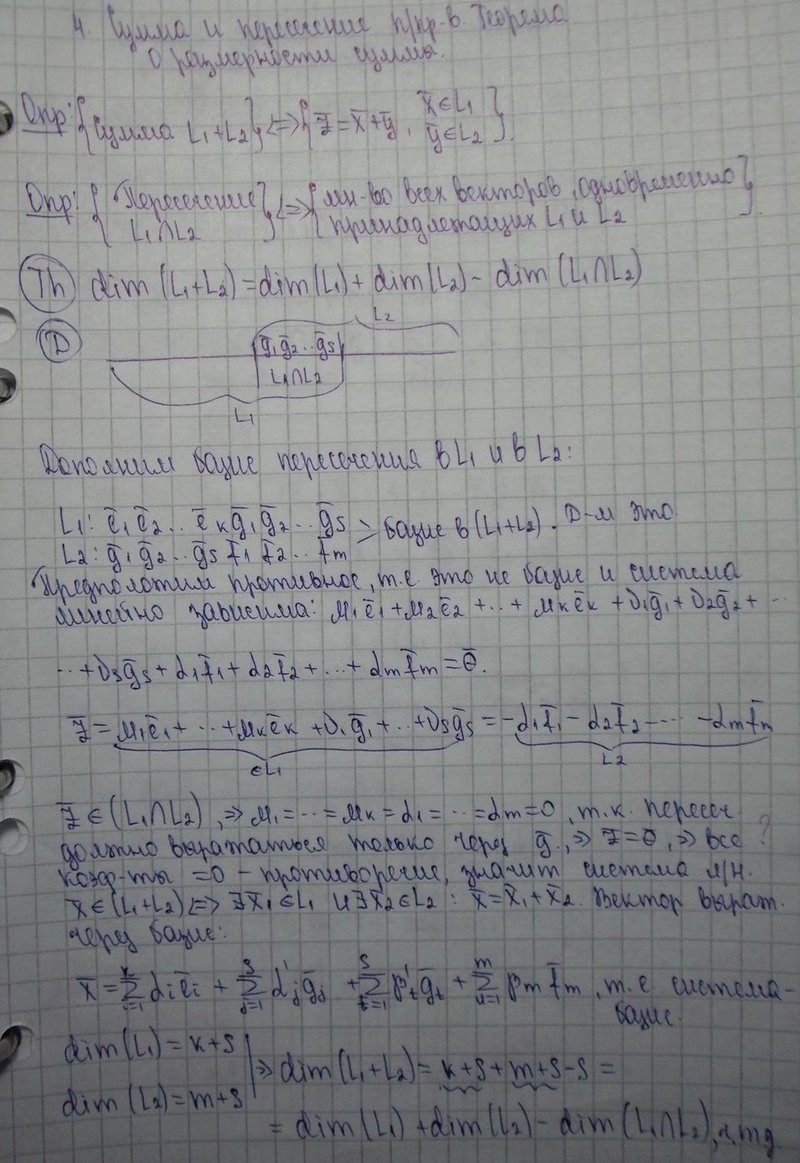 4. Сумма и пересечение п/пр-в. Теорема
о размерности суммы.
Опр: {Сумма L₁+L₂} <=> {z̄ = x̄+ȳ, x̄∈L₁ ȳ∈L₂}.
Опр: {Пересечение L₁∩L₂} <=> {мн-во всех векторов, одновременно
принадлежащих L₁ и L₂}.
Th dim (L₁+L₂) = dim(L₁) + dim(L₂) - dim (L₁∩L₂)
L₂
D ḡ₁ḡ₂...ḡs
L₁∩L₂
L₁
Дополним базис пересечения в L₁ и в L₂:
L₁: ē₁ ē₂.. ēк ḡ₁ ḡ₂... ḡs > базис в (L₁+L₂). Д-м это
L₂: ḡ₁ ḡ₂...ḡs f̄₁ f̄₂.. f̄m
Предположим противное, т.е это не базис и система
линейно зависима: μ₁ē₁ + μ₂ē₂ +..+ μкēк + ν₁ḡ₁ + ν₂ḡ₂ + ...
..+ νsḡs + α₁f̄₁ + α₂f̄₂ + ...+ αmf̄m = θ̄.
z̄ = μ₁ē₁ + ... + μкēк + ν₁ḡ₁ +..+ νsḡs = -α₁f̄₁ - α₂f̄₂ - ... - αmf̄m
∈L₁ L₂
z̄ ∈ (L₁∩L₂), => μ₁ = ... = μк = α₁ = ... = αm = 0, т.к. пересеч.
должно выражаться только через ḡ., => z̄ = θ, => все ?
коэф-ты =0 - противоречие, значит система л/н.
x̄ ∈ (L₁+L₂) <=> ∃x̄₁∈L₁ и ∃x̄₂∈L₂ : x̄ = x̄₁ + x̄₂. Вектор выраж.
через базис:
x̄ = ∑ᵢ₌₁ᵏ αᵢēᵢ + ∑ⱼ₌₁ˢ α'ⱼḡⱼ + ∑ₜ₌₁ˢ β'ₜḡₜ + ∑ᵤ₌₁ᵐ βmf̄m, т.е система-
базис.
dim(L₁) = к+s
=> dim(L₁+L₂) = к+s + m+s - s =
dim(L₂) = m+s
= dim(L₁) + dim(L₂) - dim(L₁∩L₂), чтд.